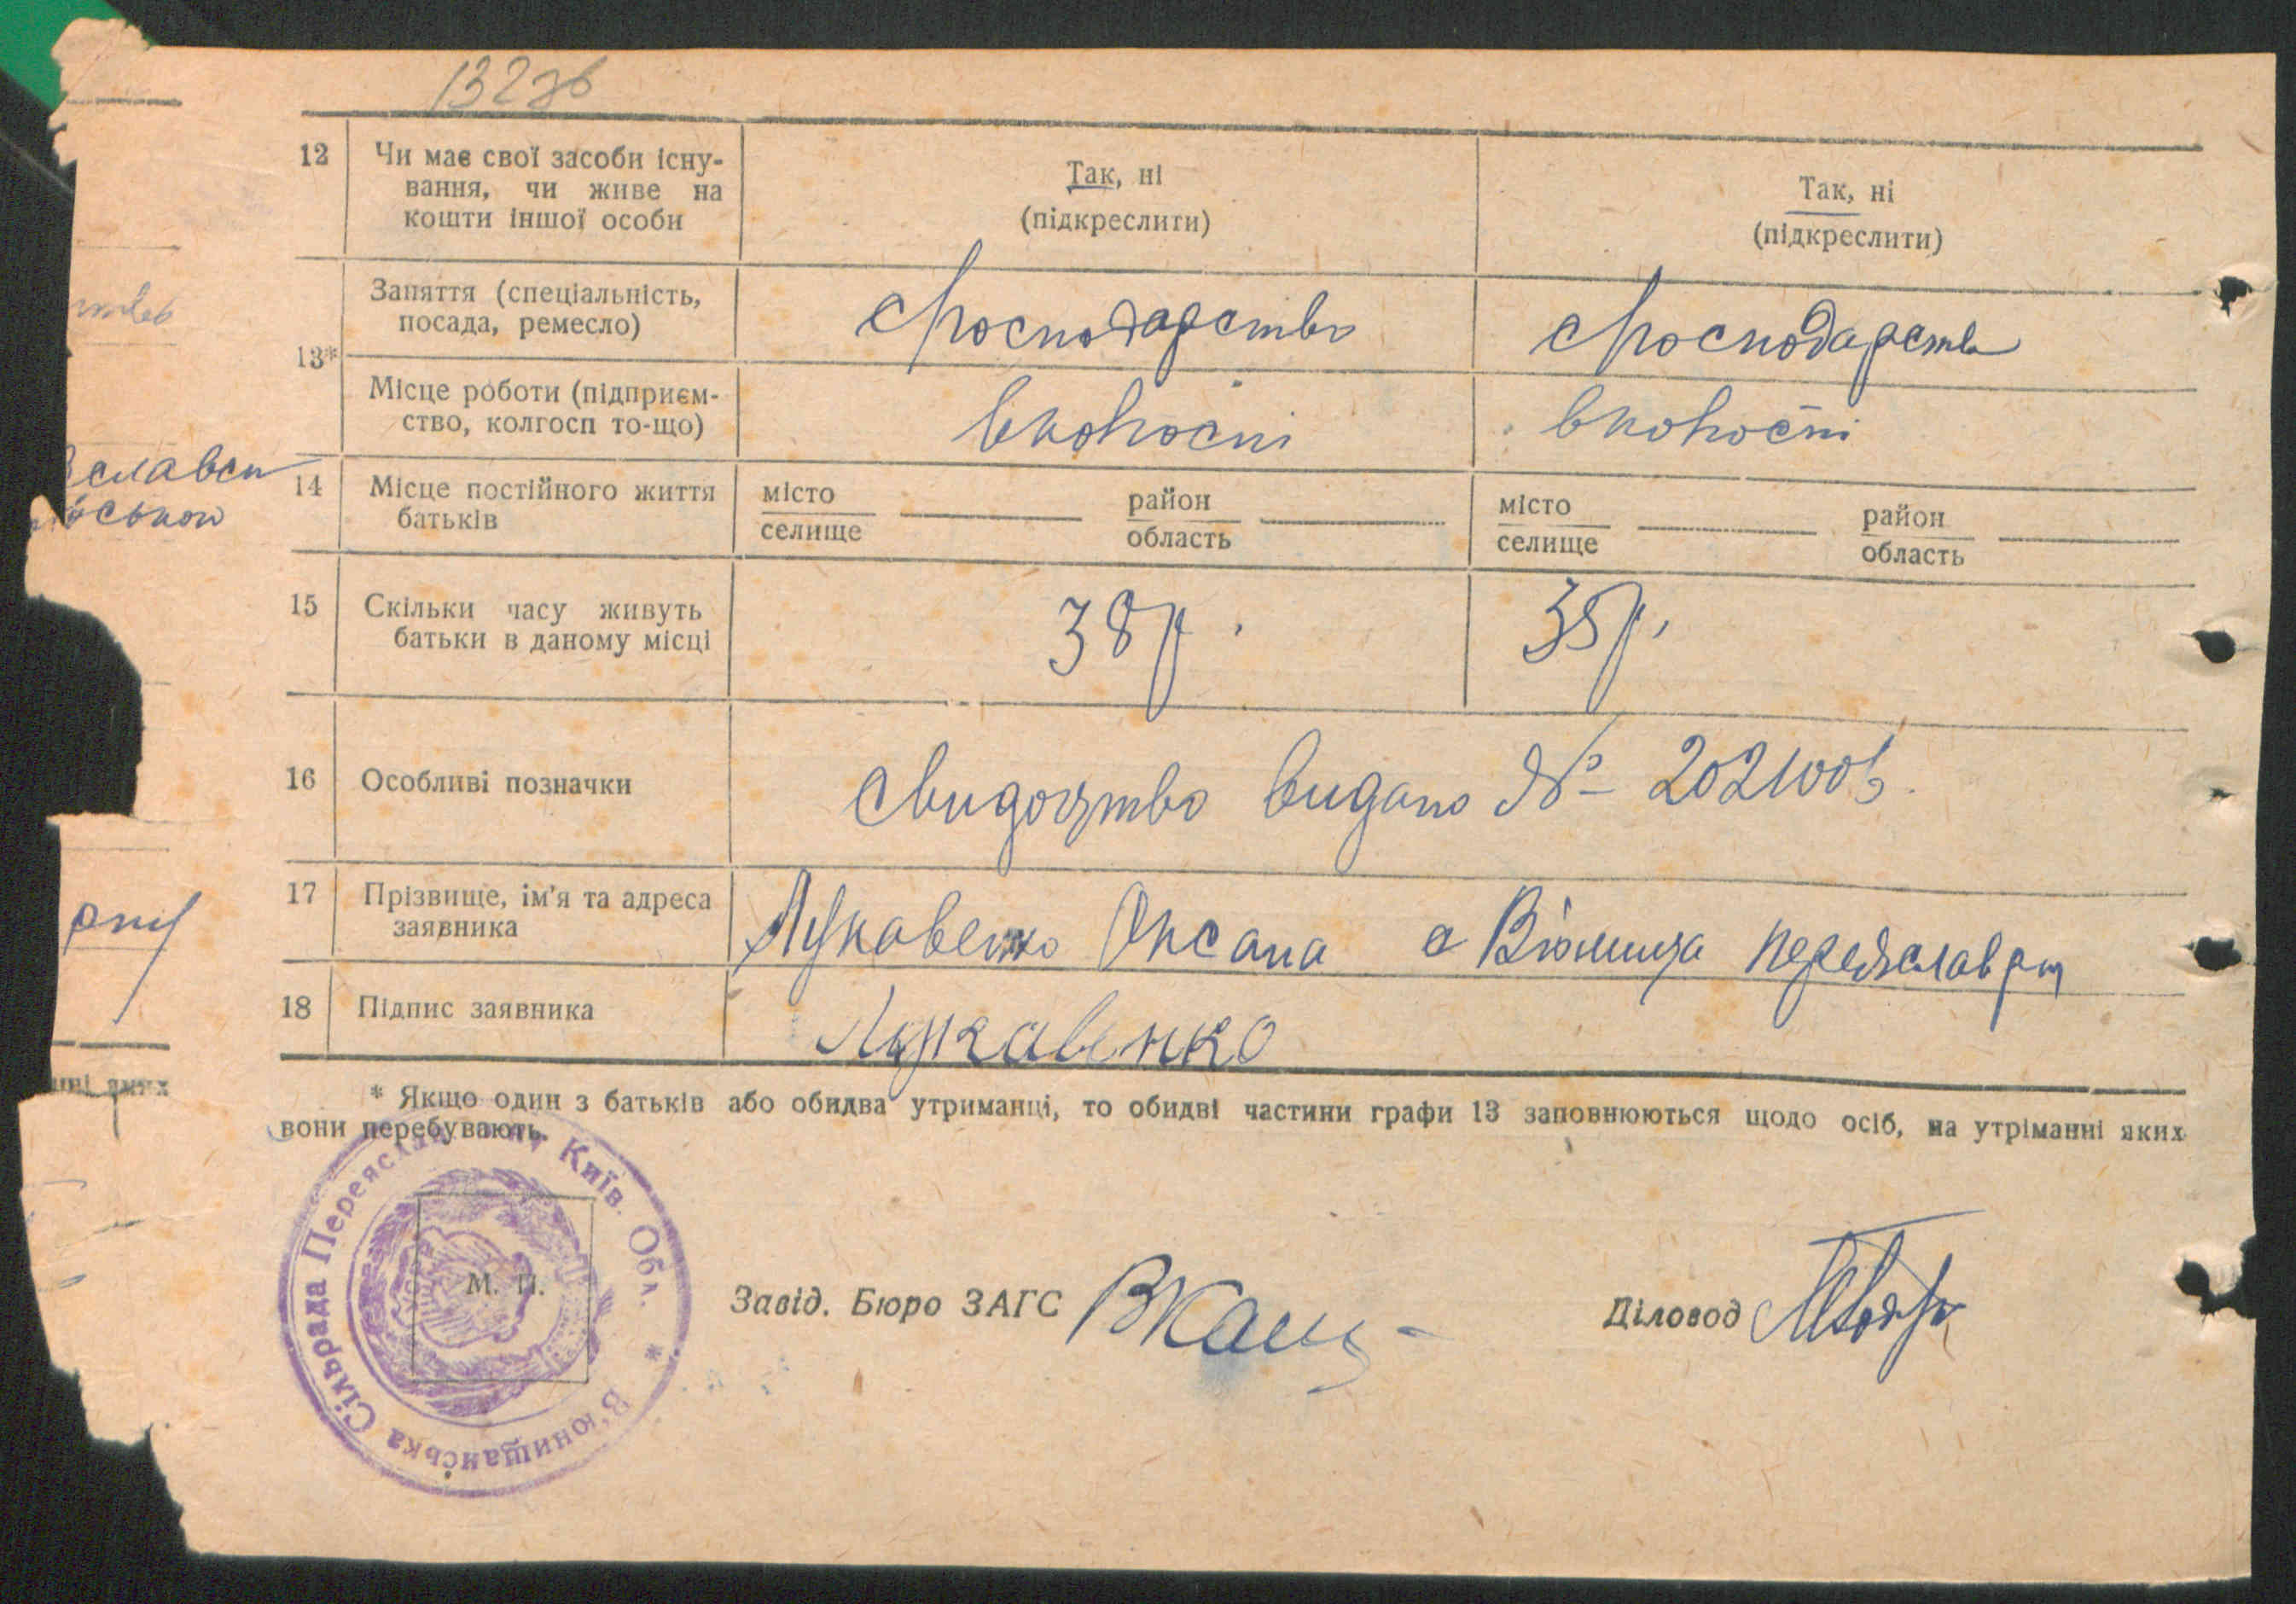 132зв
12 Чи має свої засоби існу-
вання, чи живе на
кошти іншої особи
Так, ні
(підкреслити)
Так, ні
(підкреслити)
13*
Заняття (спеціальність,
посада, ремесло)
с господарство
с господарств
Місце роботи (підприєм-
ство, колгосп то-що)
в колгоспі
в колгоспі
14 Місце постійного життя
батьків
місто
селище
район
область
місто
селище
район
область
15 Скільки часу живуть
батьки в даному місці
38 р.
35 р.
16 Особливі позначки
свидоцтво видано №
17 Прізвище, ім'я та адреса
заявника
Лукавенко Оксана с Вюнища
18 Підпис заявника
Лукавенко
* Якщо один з батьків або обидва утриманці, то обидві частини графи 13 заповнюються щодо осіб, на утріманні яких
вони перебувають.
В'юнищанська Сільрада Київ. Обл. *
М. П.
Завід. Бюро ЗАГС
Діловод